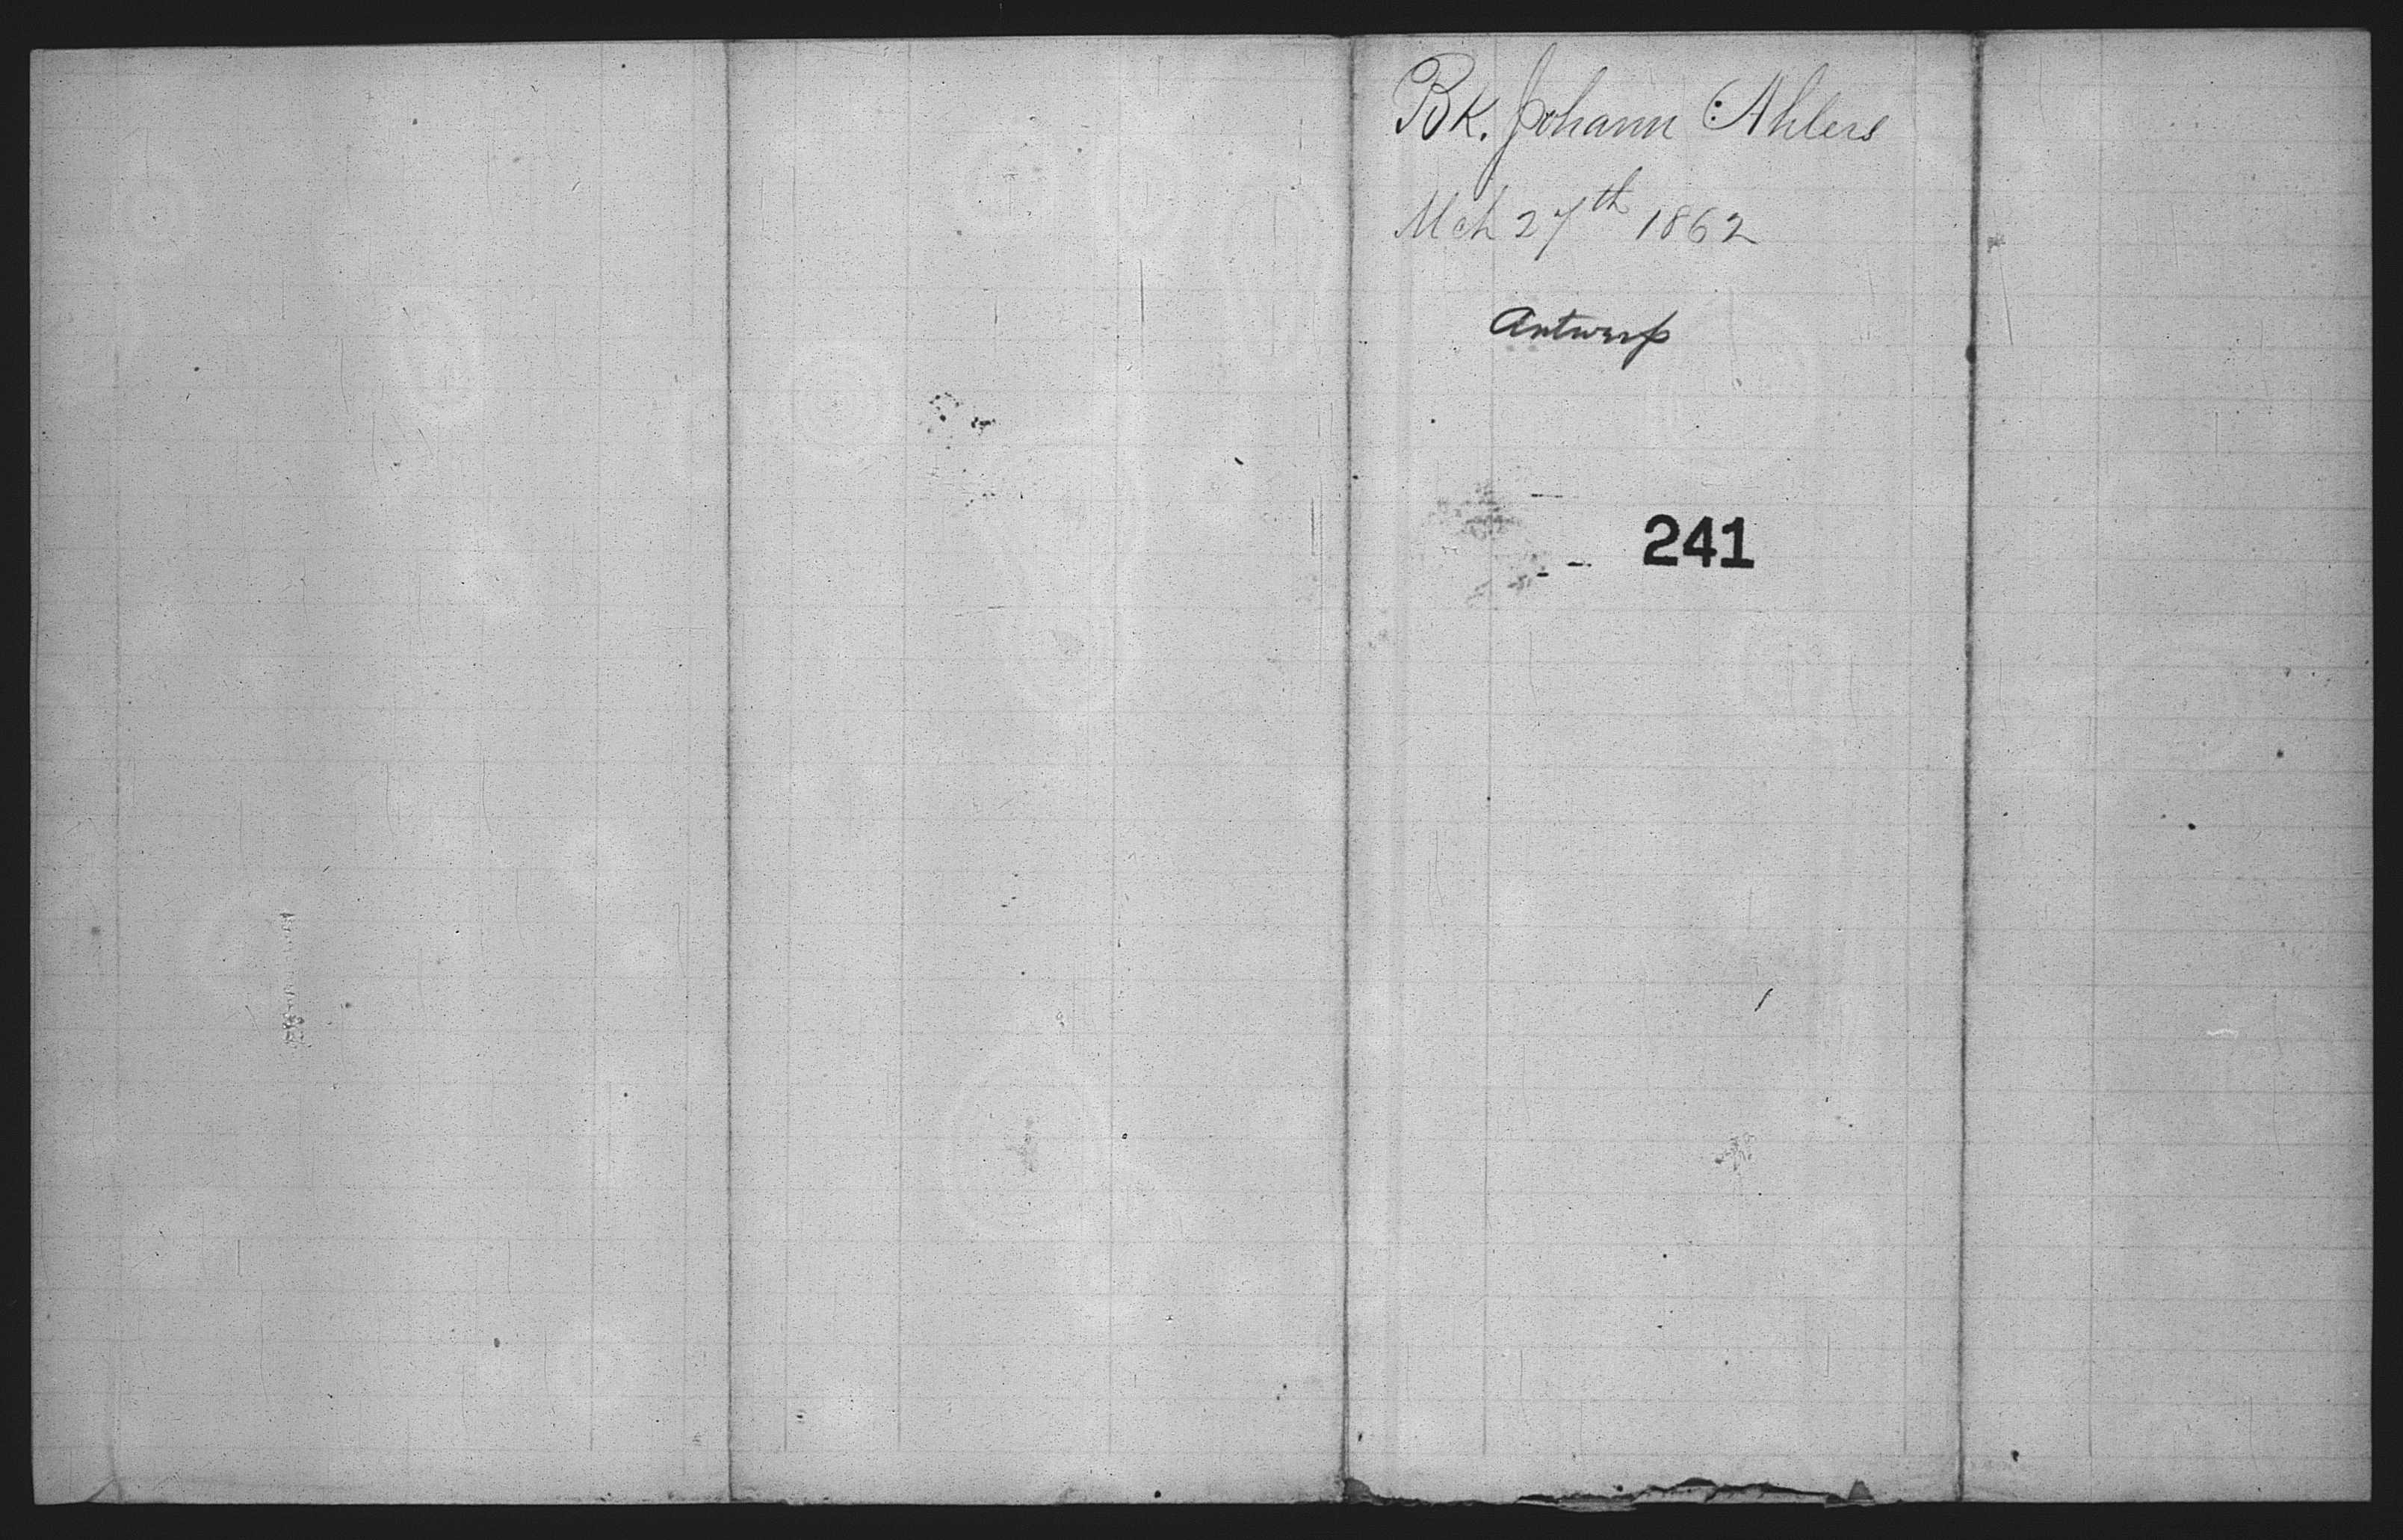 Bk. Johann Ahlers
Mch 27th 1862
Antwerp
241